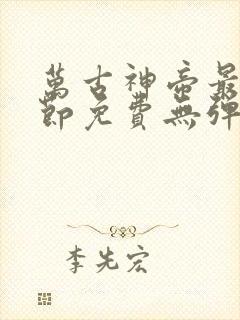 萬古神帝最
節免費無彈
李先宏